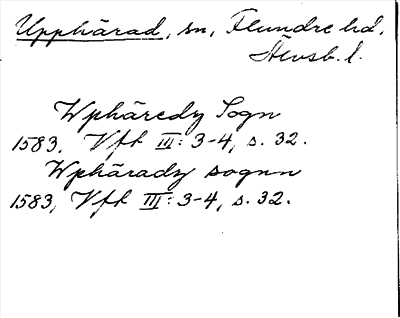 Upphärad, sn, Flundre hd,
Älvsb. l.
Wphäredz Sogn
1583, Vft III: 3-4, s. 32.
Wphäradz sognn
1583, Vft III: 3-4, s. 32.